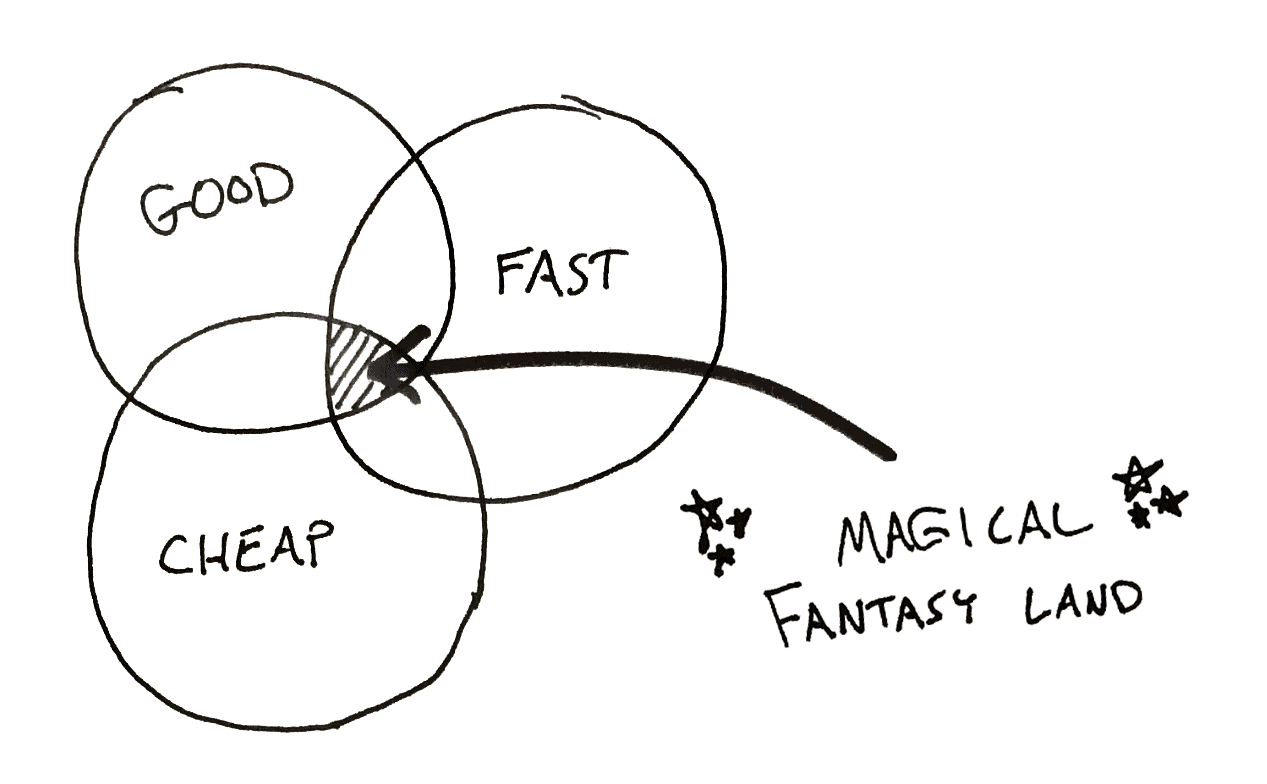 GOOD
FAST
CHEAP
MAGICAL
FANTASY LAND